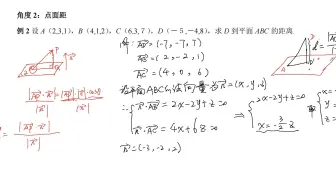 角度 2：点面距
例 2 设 A（2,3,1），B（4,1,2），C（6,3,7），D（－5,－4,8），求 D 到平面 ABC 的距离.
解: AD = (-7, -7, 7)
AB = (2, -2, 1)
AC = (4, 0, 6)
设平面ABC的法向量为 n = (x, y, z)
∴ { n·AB = 2x-2y+z=0
n·AC = 4x+6z=0
⇒ { 2x-2y+z=0
x=-3/2 z
n=(-3,-2,2)
|AP·n|
|n|
A
D